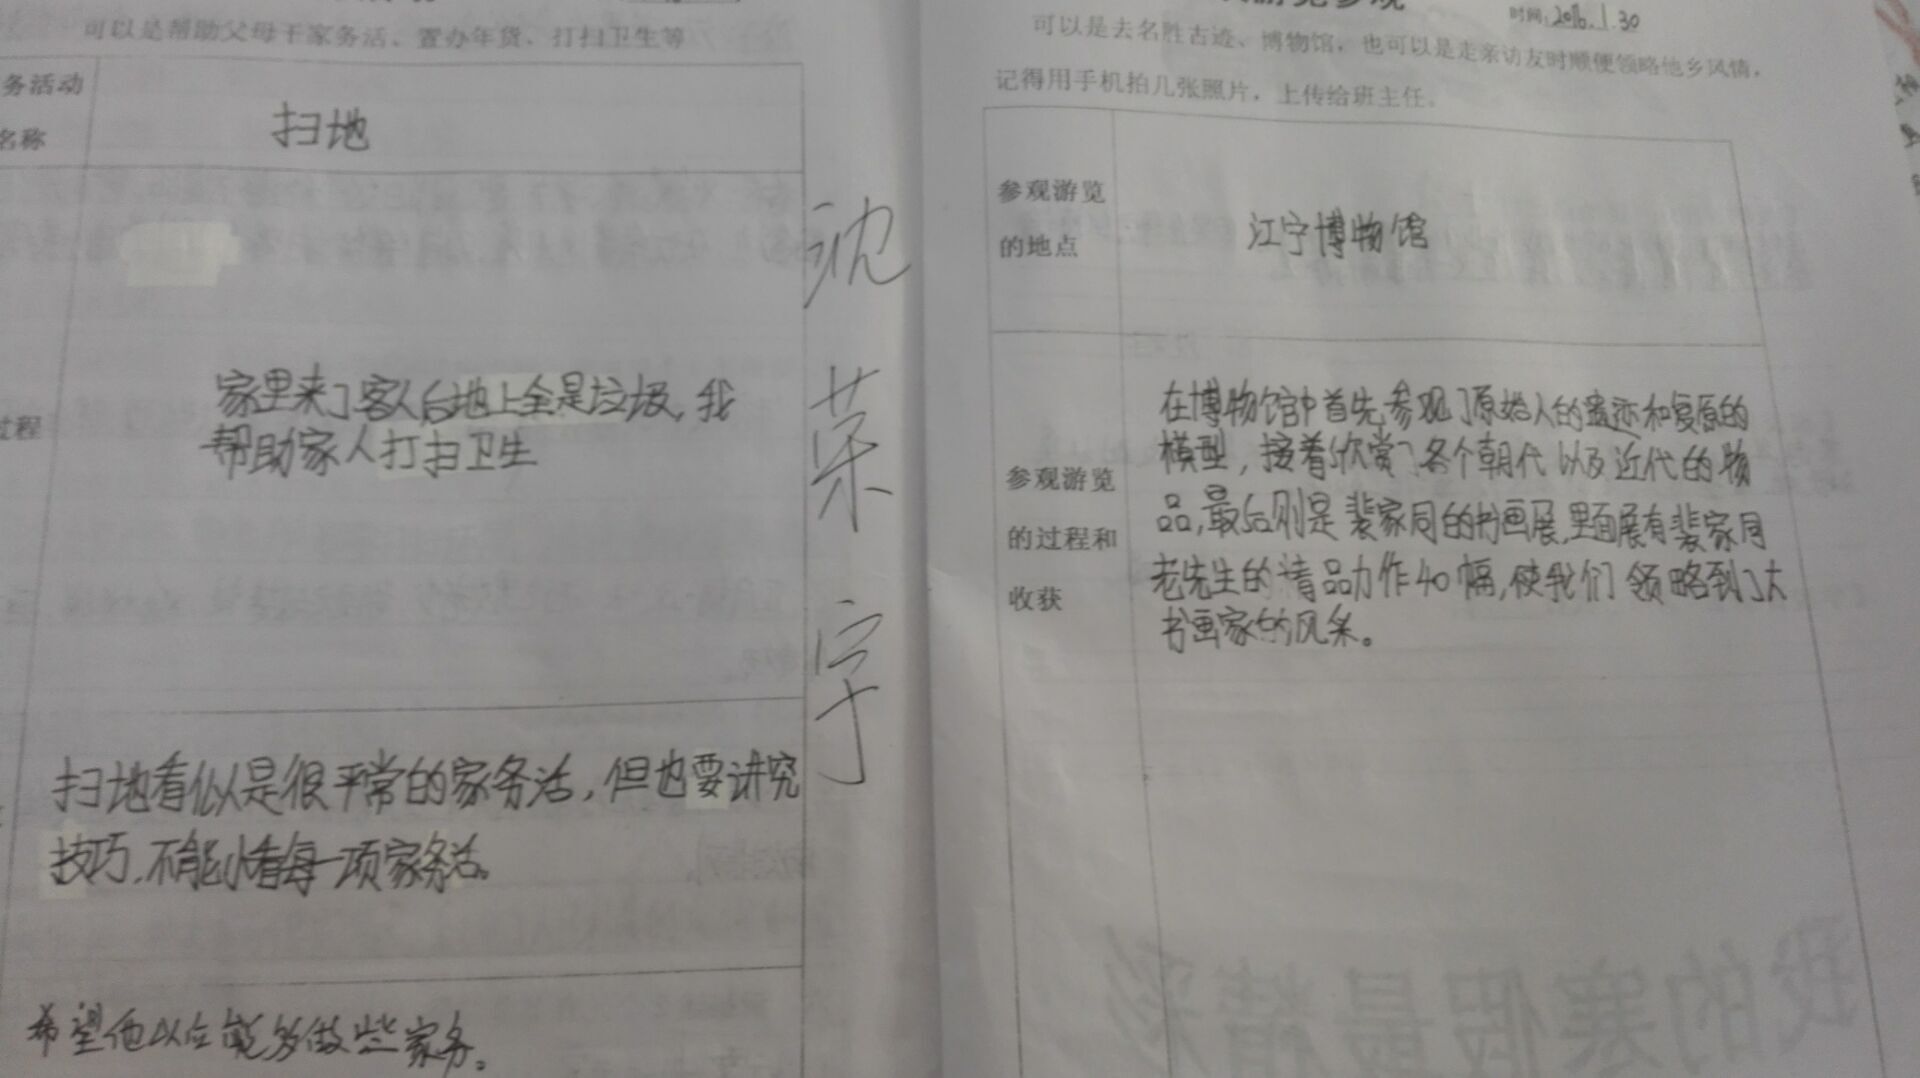 可以是帮助父母干家务活、置办年货、打扫卫生等
务活动
名称
扫地
过程
家里来了客人后地上全是垃圾,我
帮助家人打扫卫生
扫地看似是很平常的家务活,但也要讲究
技巧.不能小看每一项家务活。
希望他以后能多做些家务。
沈
荣
宇
时间:2016.1.30
可以是去名胜古迹、博物馆,也可以是走亲访友时顺便领略他乡风情,
记得用手机拍几张照片,上传给班主任。
参观游览
的地点
江宁博物馆
参观游览
的过程和
收获
在博物馆中首先参观了原始人的遗迹和复原的
模型,接着欣赏了各个朝代以及近代的物
品,最后则是裴家同的书画展,里面展有裴家同
老先生的精品力作40幅,使我们领略到了大
书画家的风采。
我的寒假最精彩